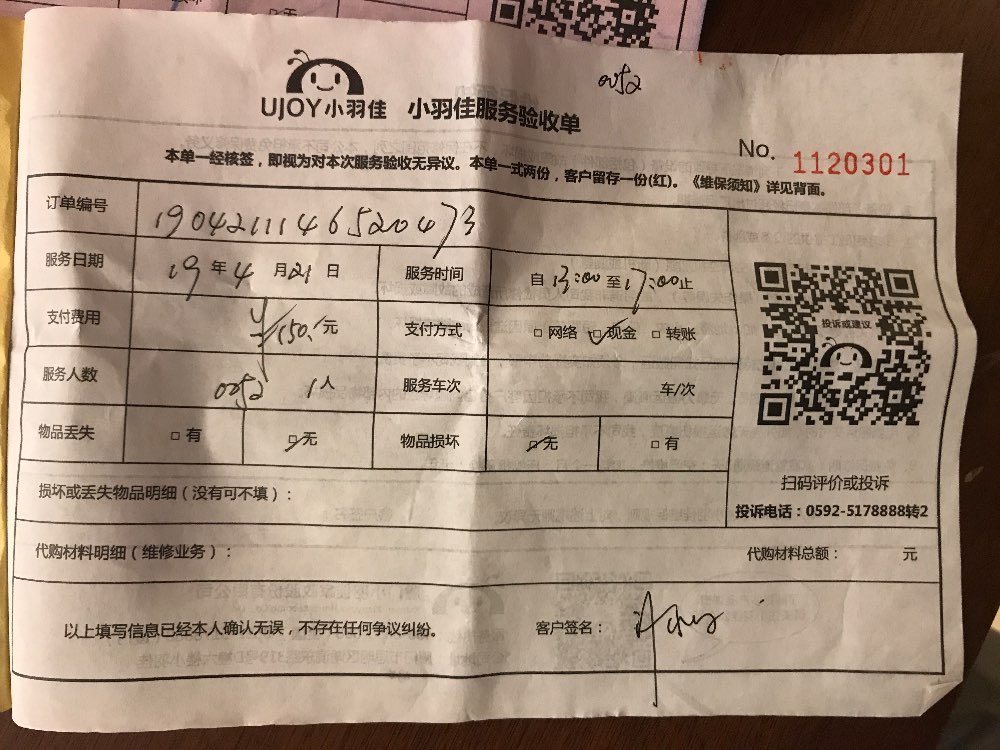 0052
UJOY小羽佳 小羽佳服务验收单
No. 1120301
本单一经核签，即视为对本次服务验收无异议。本单一式两份，客户留存一份(红)。《维保须知》详见背面。
订单编号 1904211146520473
服务日期 19 年 4 月 21 日 服务时间 自 13:00 至 17:00 止
支付费用 150 元 支付方式 □ 网络 □ 现金 □ 转账
投诉或建议
服务人数 0052 1 人 服务车次 车/次
物品丢失 □ 有 □ 无 物品损坏 □ 无 □ 有
扫码评价或投诉
损坏或丢失物品明细（没有可不填）：
投诉电话：0592-5178888转2
代购材料明细（维修业务）： 代购材料总额： 元
以上填写信息已经本人确认无误，不存在任何争议纠纷。 客户签名：